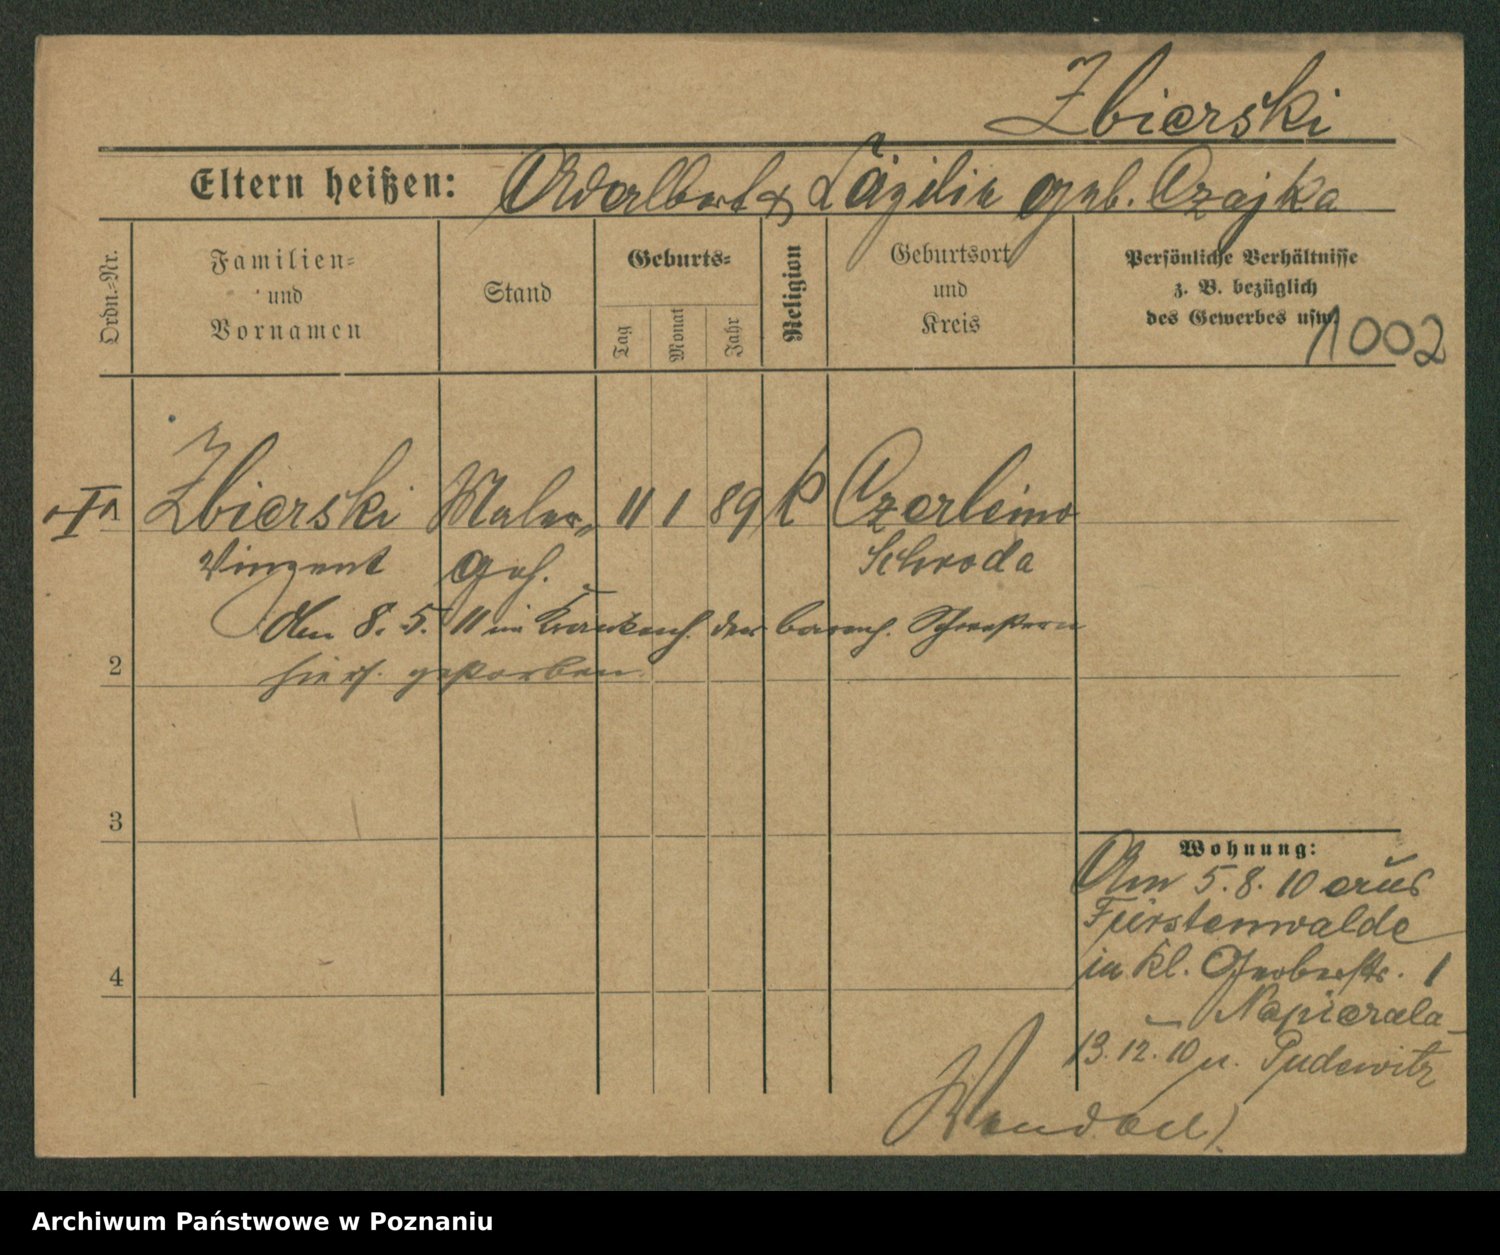 Zbierski
Eltern heißen: Adalbert & Cäzilie geb. Czajka
Ordn.-Nr.
Familien-
und
Vornamen
Stand
Geburts-
Tag
Monat
Jahr
Religion
Geburtsort
und
Kreis
Persönliche Verhältnisse
z. B. bezüglich
des Gewerbes usw.
1002
1 Zbierski Maler 11 1 89 k Czerleino
Vinzent geh. Schroda
Am 8. 5. 11 im Krankenh. der barmh. Schwestern
2 hiers. gestorben.
3
4
Wohnung:
Am 5. 8. 10 aus
Fürstenwalde
in kl. Gerberstr. 1
Napierala
13. 12. 10 n. Pudewitz
Archiwum Państwowe w Poznaniu